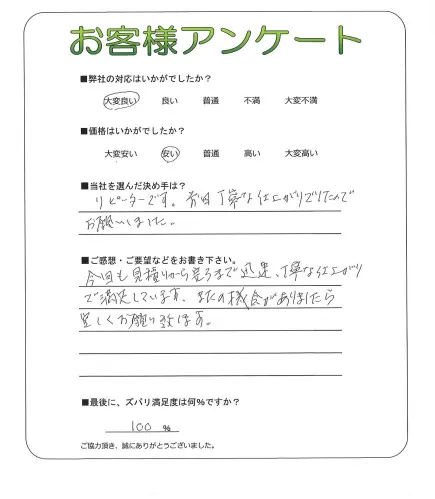 お客様アンケート
■弊社の対応はいかがでしたか？
大変良い 良い 普通 不満 大変不満
■価格はいかがでしたか？
大変安い 安い 普通 高い 大変高い
■当社を選んだ決め手は？
リピーターです。前回丁寧な仕上がりでしたので
お願いしました。
■ご感想・ご要望などをお書き下さい。
今回も見積りから完了まで迅速、丁寧な仕上がり
で満足しています。またの機会がありましたら
宜しくお願い致します。
■最後に、ズバリ満足度は何％ですか？
100 ％
ご協力頂き、誠にありがとうございました。